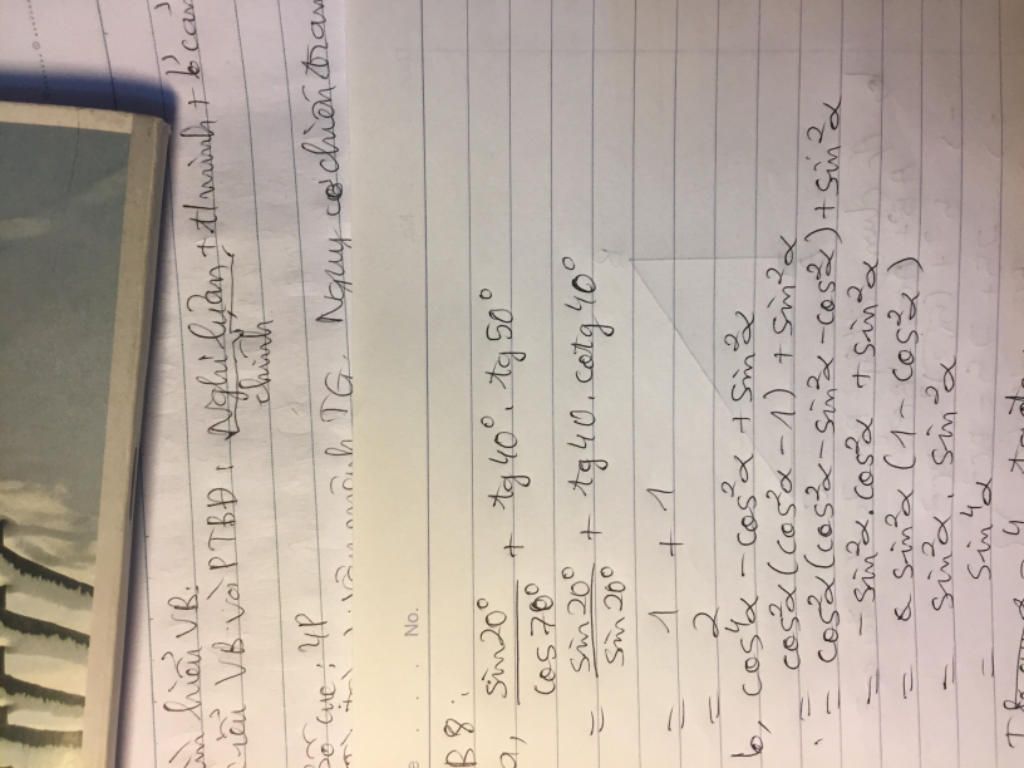 hiểu VB.
VB và PTBĐ: Nghị luận + th minh +
chính
4P
TG. Nguy cơ chiến tran
No.
B8.
a, sin20° / cos70° + tg40°. tg50°
= sin20° / sin20° + tg40. cotg40°
= 1 + 1
= 2
b, cos⁴α - cos²α + sin²α
= cos²α(cos²α - 1) + sin²α
= cos²α(cos²α - sin²α - cos²) + sin²α
= - sin²α.cos²α + sin²α
= sin²α (1 - cos²α)
= sin²α. sin²α
= sin⁴α